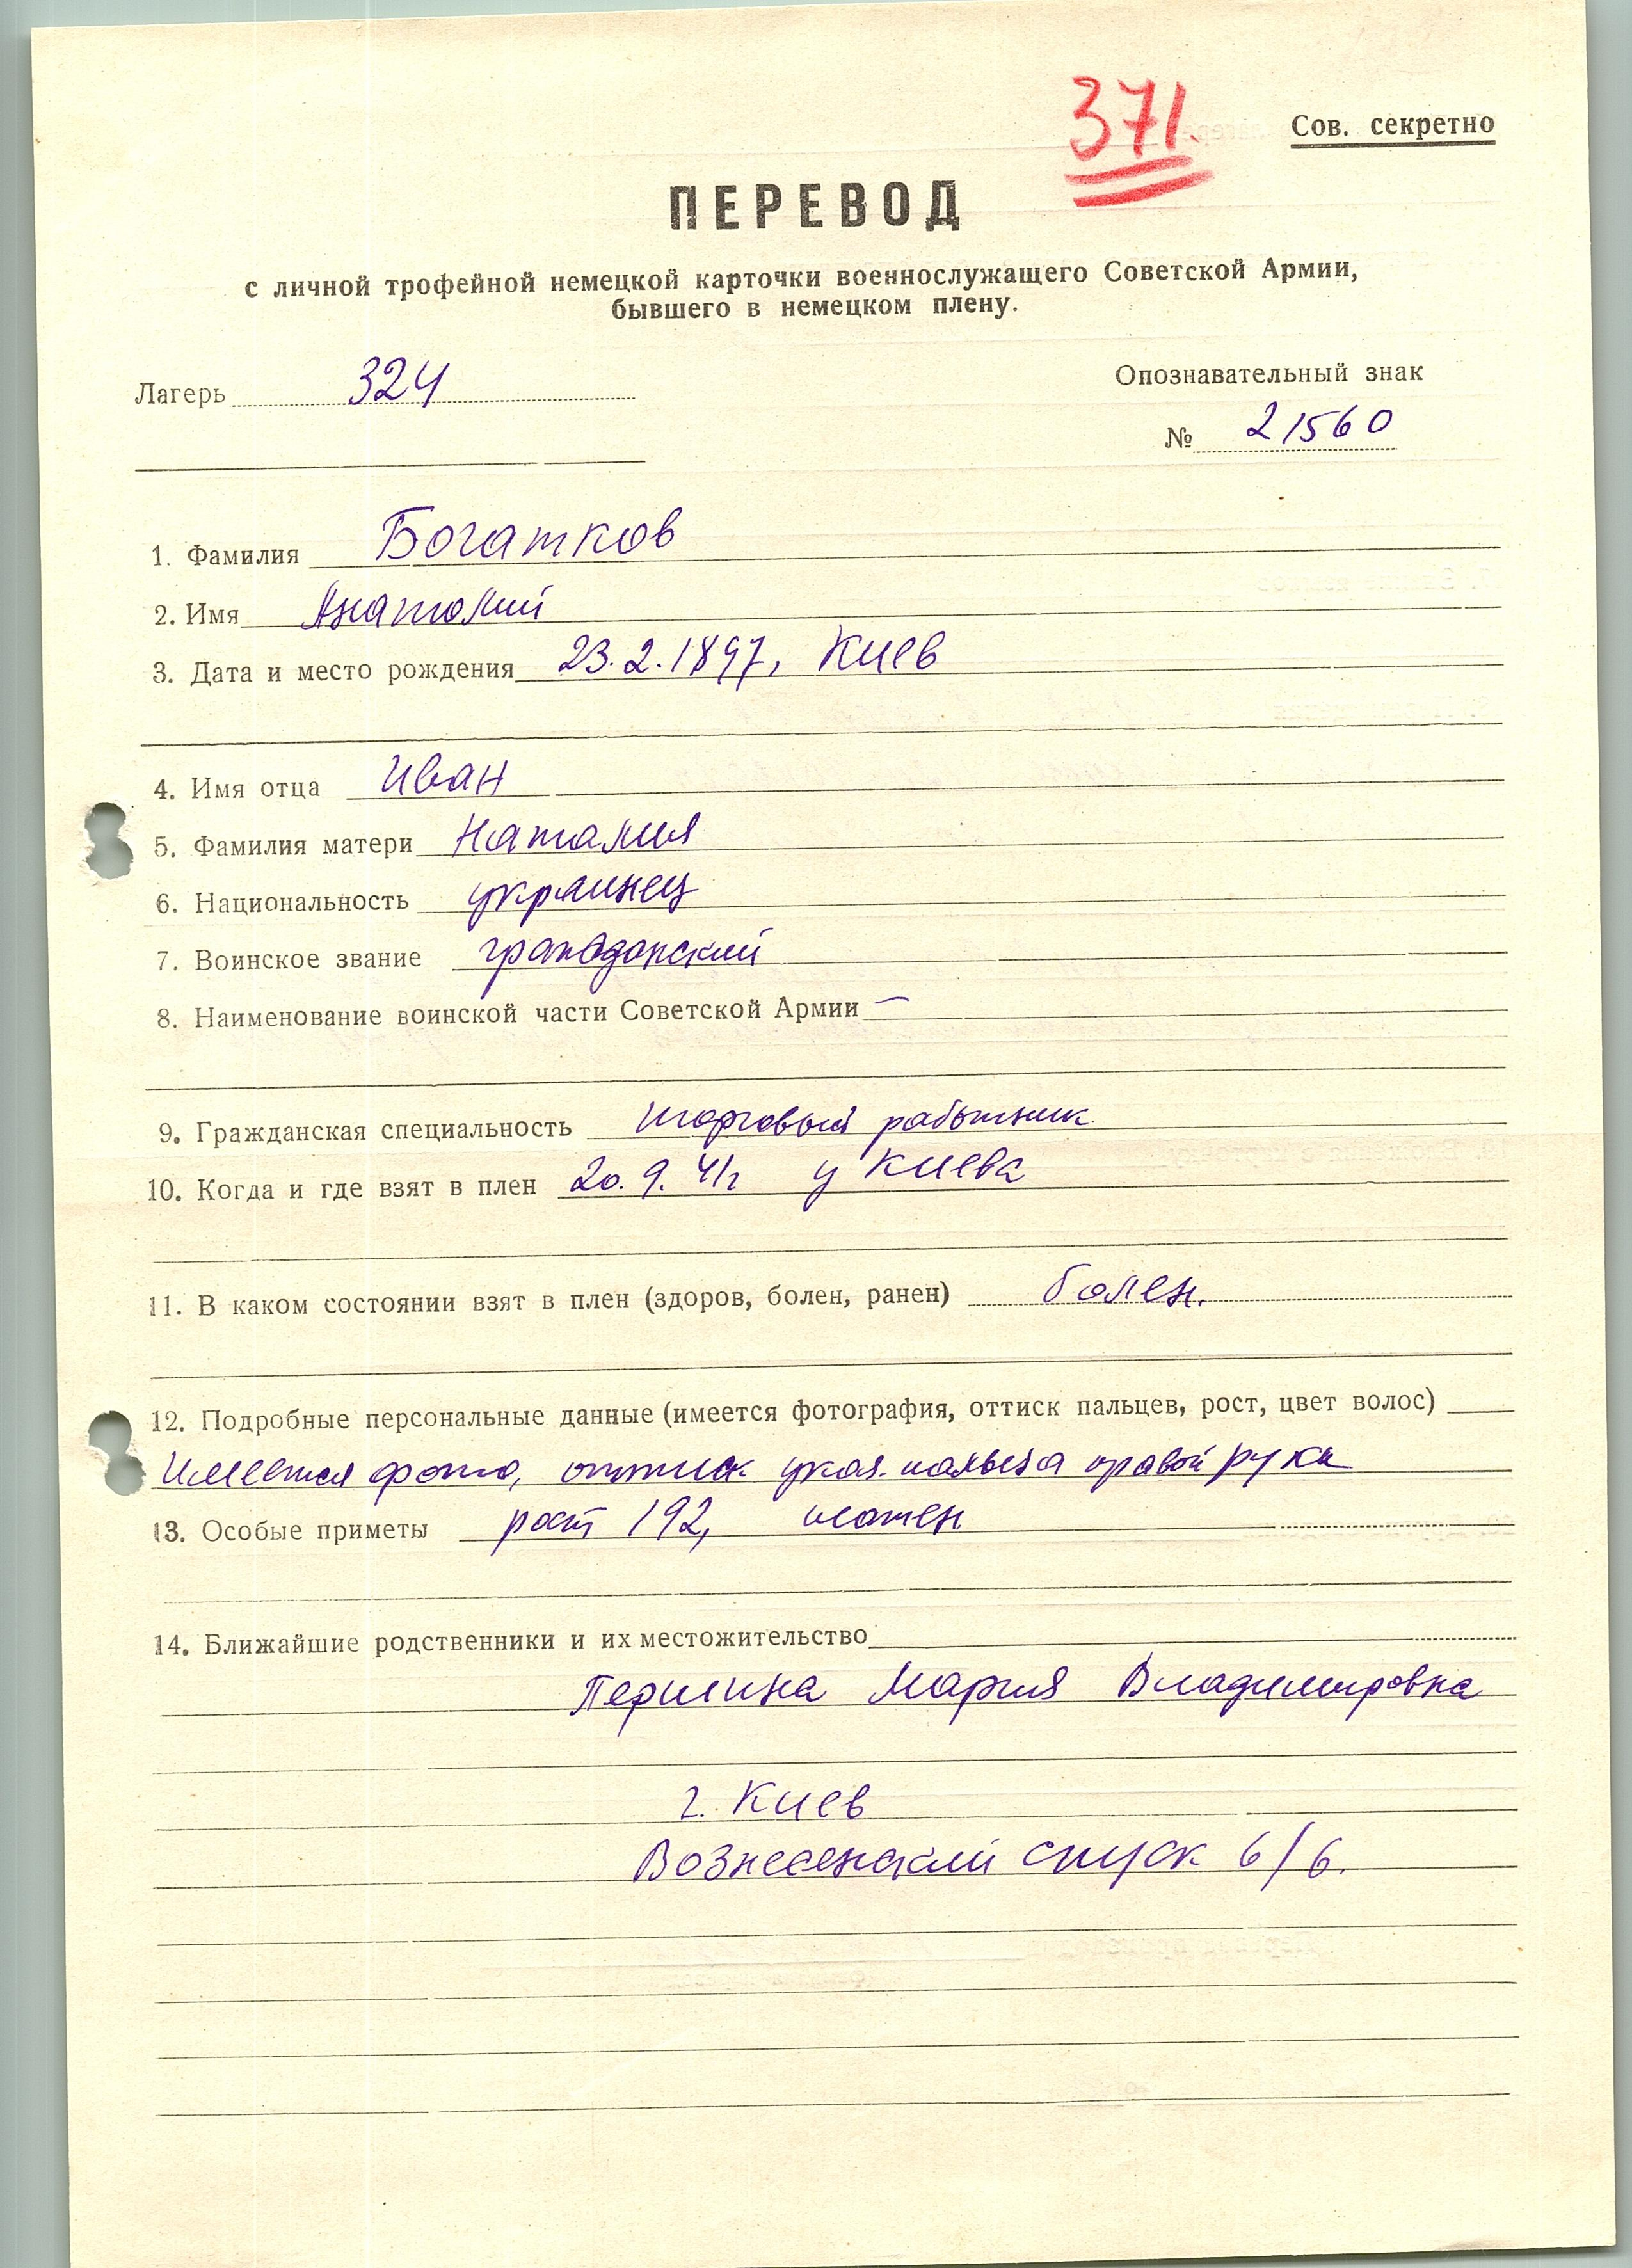 371.
Сов. секретно
ПЕРЕВОД
с личной трофейной немецкой карточки военнослужащего Советской Армии,
бывшего в немецком плену.
Лагерь 324
Опознавательный знак
№ 21560
1. Фамилия Богатков
2. Имя Анатолий
3. Дата и место рождения 23.2.1897, Киев
4. Имя отца Иван
5. Фамилия матери Наталия
6. Национальность украинец
7. Воинское звание гражданский
8. Наименование воинской части Советской Армии —
9. Гражданская специальность торговый работник
10. Когда и где взят в плен 20.9.41г у Киева
11. В каком состоянии взят в плен (здоров, болен, ранен) болен.
12. Подробные персональные данные (имеется фотография, оттиск пальцев, рост, цвет волос)
Имеется фото, оттиск указ. пальца правой руки
13. Особые приметы рост 192,
14. Ближайшие родственники и их местожительство
Мария Владимировна
г. Киев
Вознесенский спуск 6/6.